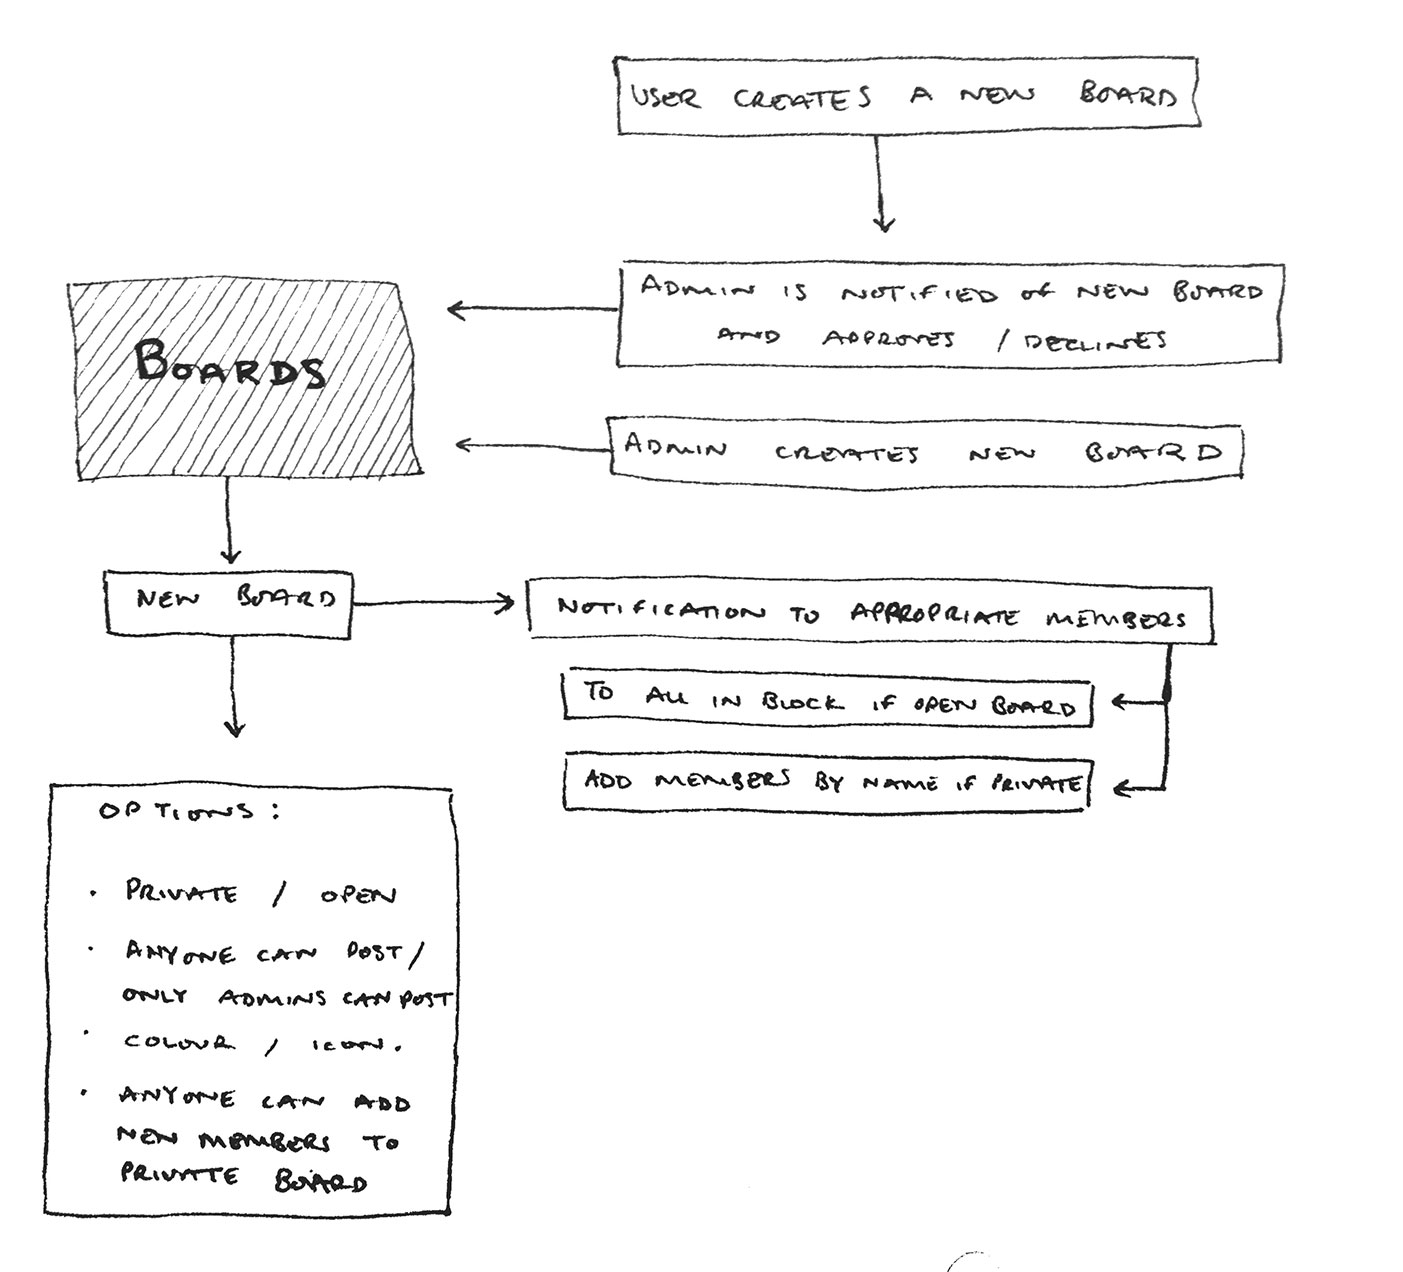 USER CREATES A NEW BOARD
ADMIN IS NOTIFIED OF NEW BOARD
AND APPROVES / DECLINES
BOARDS
ADMIN CREATES NEW BOARD
NEW BOARD
NOTIFICATION TO APPROPRIATE MEMBERS
TO ALL IN BLOCK IF OPEN BOARD
ADD MEMBERS BY NAME IF PRIVATE
OPTIONS:
· PRIVATE / OPEN
· ANYONE CAN POST /
ONLY ADMINS CAN POST
· COLOUR / ICON.
· ANYONE CAN ADD
NEW MEMBERS TO
PRIVATE BOARD